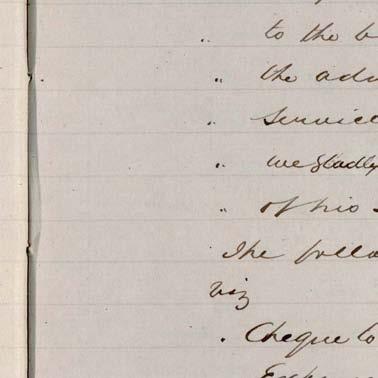 " to the b
" the adv
" service
" we gladly
" of his
The follo
viz
. Cheque to